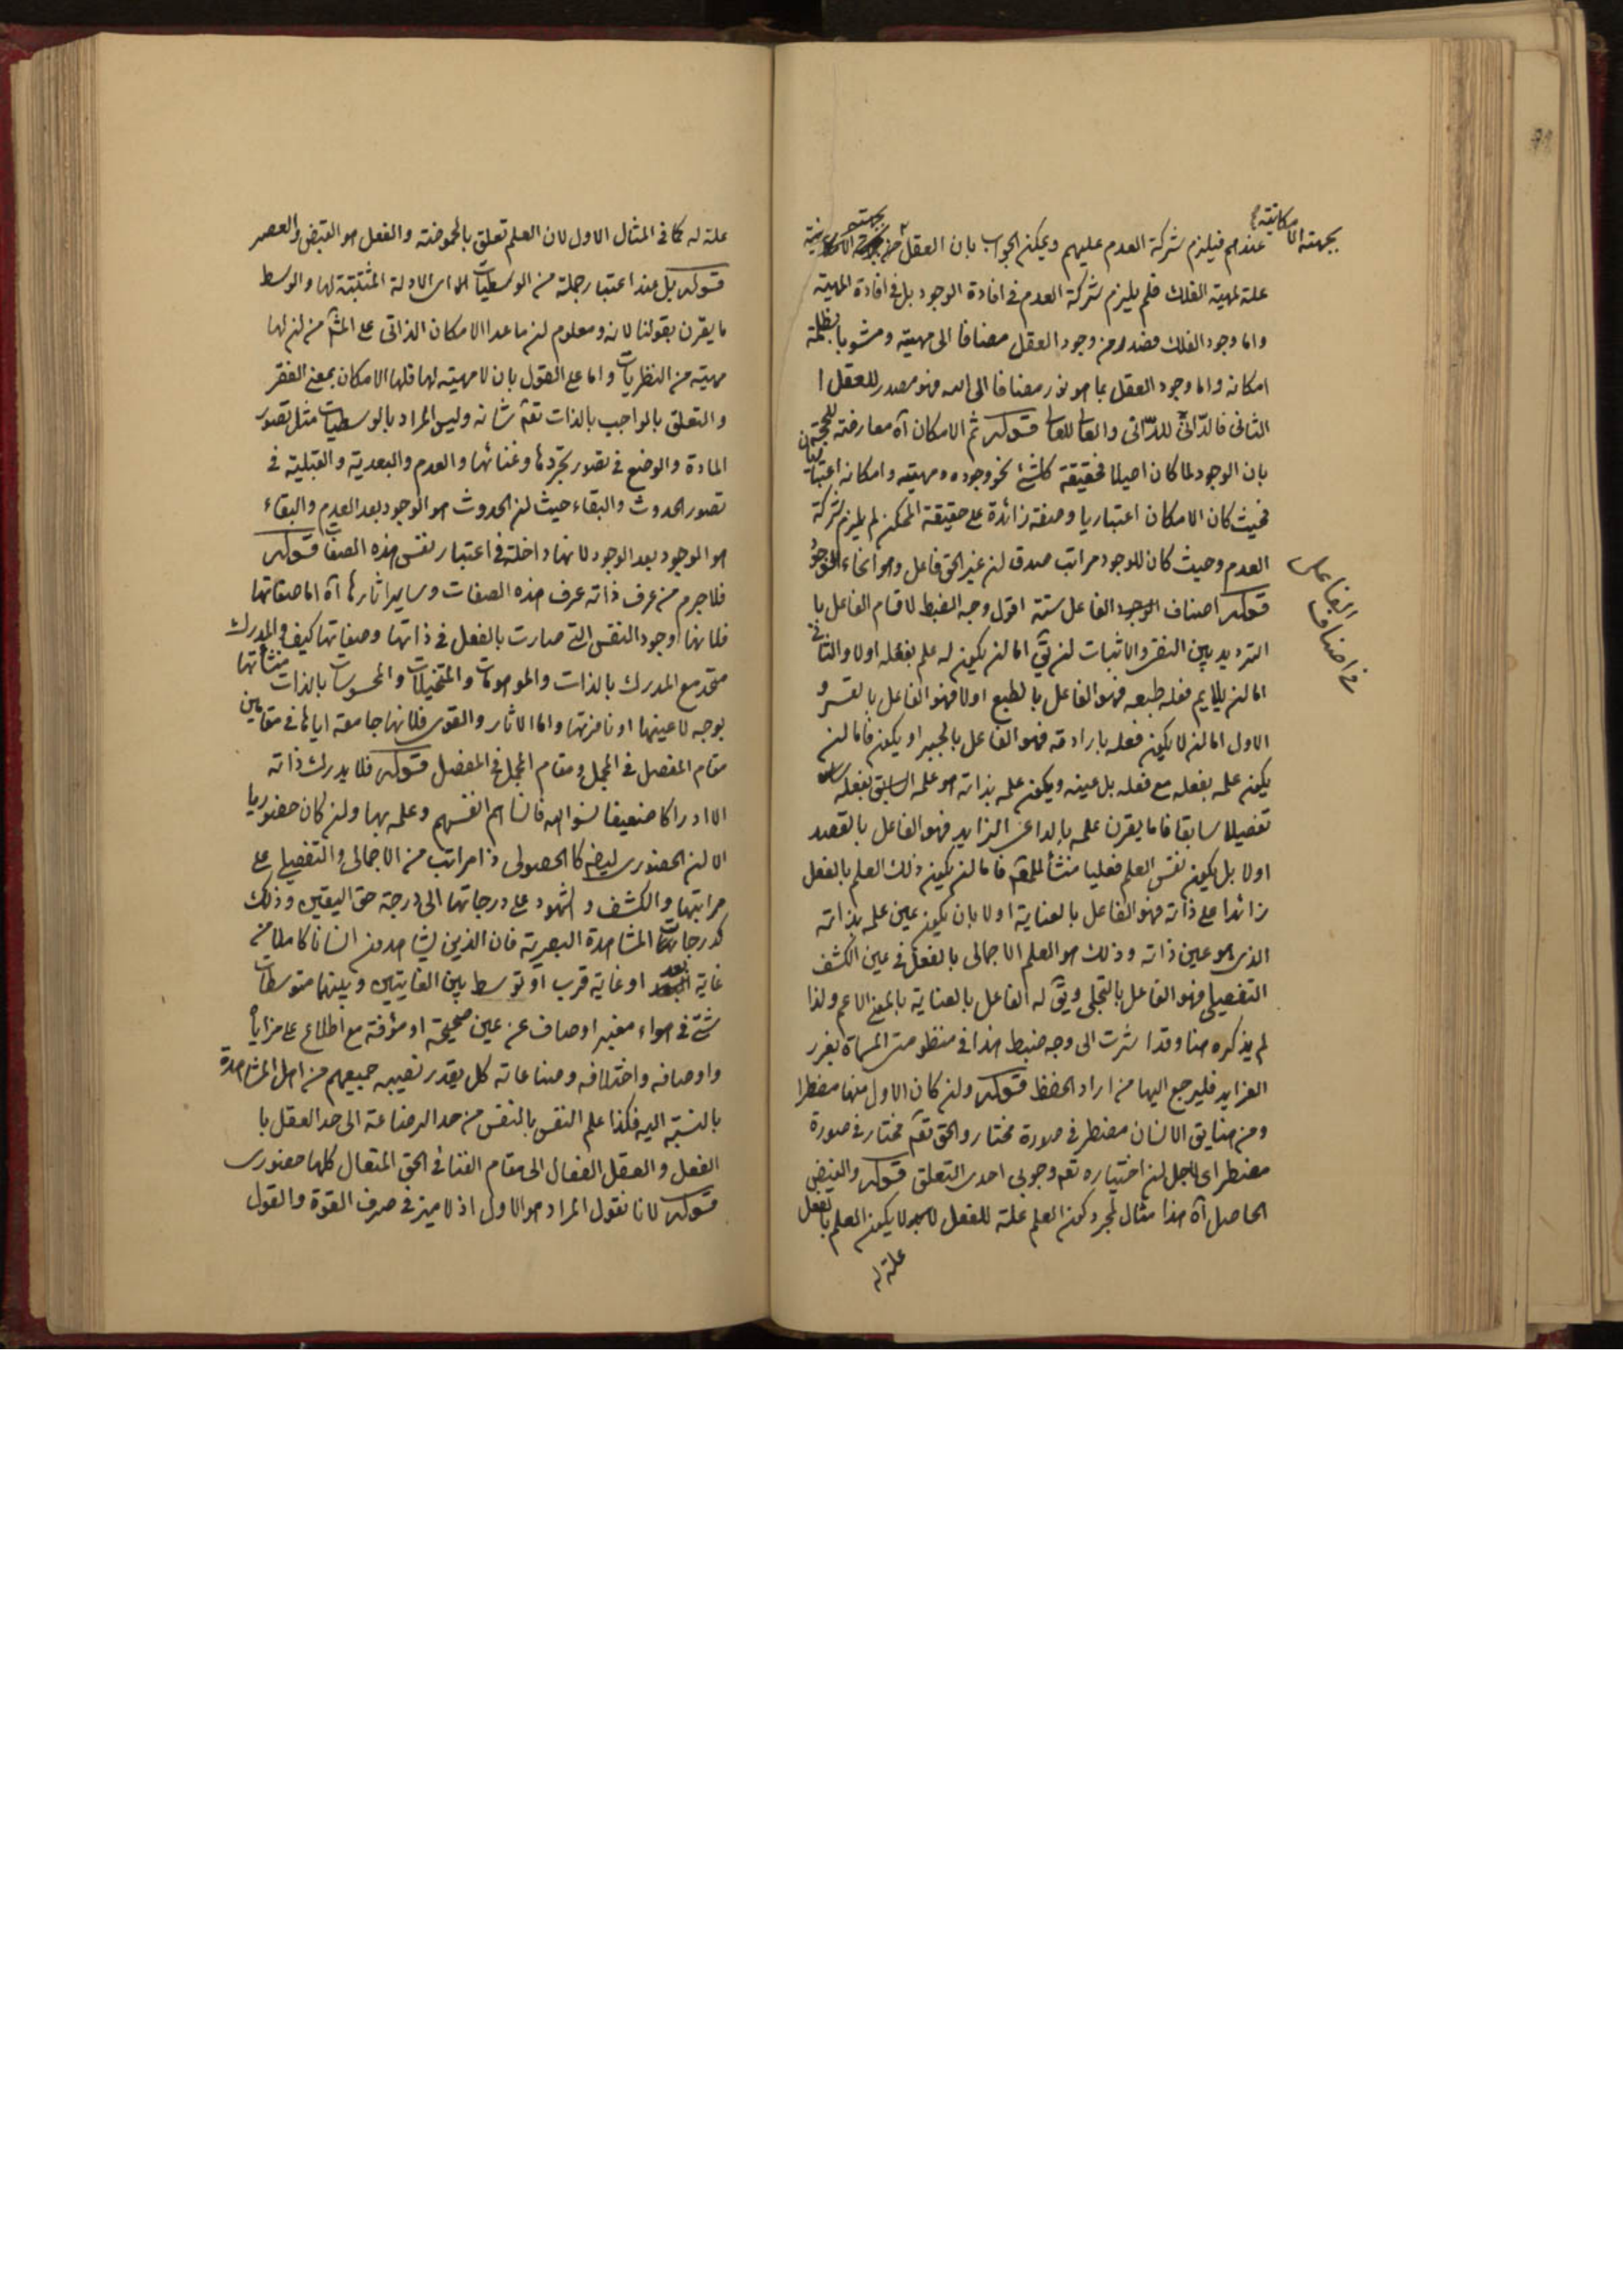 بجهته الامكانية
عندهم فيلزم شركة العدم عليهم ويمكن الجواب بان العقل من بجهته
علة لمهية الفلك فلم يلزم شركة العدم في افادة الوجود بل في افادة المهية
واما وجود الفلك فصدر من وجود العقل مضافا الى مهيته ومشوبا بظلمة
امكانه واما وجود العقل بما هو نور مضافا الى الله فهو مصدر للعقل ا
الثانى فالذاتى للذاتى والعالى للعالى قوله ثم الامكان آه معارضة للحجة
بان الوجود لما كان اصيلا فحقيقة كلشئ نحو وجوده ومهيته وامكانه اعتباريان
فحيث كان الامكان اعتباريا وصفة زائدة على حقيقة الممكن لم يلزم شركة
العدم وحيث كان للوجود مراتب صدق لن غير الحق فاعل وهو انحاء الوجود
فى اصناف الفاعل
قوله اصناف الفاعل ستة اقول وجه الضبط لاقسام الفاعل با
الترديد بين النفى والاثبات لن يق اما لن يكون له علم بفعله اولا والثانى
اما لن يلايم فعله طبعه فهو الفاعل بالطبع اولا فهو الفاعل بالقسر و
الاول اما لن لا يكون فعله بارادته فهو الفاعل بالجبر او يكون فاما لن
يكون علمه بفعله مع فعله بل عينه ويكون علمه بذاته هو علمه السابق بفعله
تفصيلا سابقا فاما يقرن علمه بالداعى الزايد فهو الفاعل بالقصد
اولا بل يكون نفس العلم فعليا منشأ للمعلوم فاما لن يكون ذلك العلم بالفعل
زائدا على ذاته فهو الفاعل بالعناية اولا بان يكون عين علمه بذاته
الذى هو عين ذاته وذلك هو العلم الاجمالى بالفعل فى عين الكشف
التفصيلى فهو الفاعل بالتجلى ويق له الفاعل بالعناية بالمعنى الاعم ولذا
لم يذكره هنا وقد اشرت الى وجه ضبط هذا فى منظومتى المسماة بغرر
الفرايد فليرجع اليها من اراد الحفظ قوله ولن كان الاول منها مضطرا
ومن هنا يق الانسان مضطر فى صورة مختار والحق تعم مختار فى صورة
مضطر اى لاجل لن اختياره تعم وجوبى احدى التعلق قوله والقبض
الحاصل آه هذا مثال لمجرد كون العلم علة للفعل لا يكون العلم بالفعل
علة له
علة له كما فى المثال الاول لان العلم تعلق بالحموضة والفعل هو القبض والعصر
قوله بل عند اعتبار جملة من الوسطيات اى الادلة المثبتة لها والوسط
ما يقرن بقولنا لانه ومعلوم لن ما عدا الامكان الذاتى على المش من لن لها
مهية من النظريات واما على القول بان لا مهية لها فلها الامكان بمعنى الفقر
والتعلق بالواجب بالذات تعم شانه وليس المراد بالوسطيات مثل تصور
المادة والوضع فى تصور تجردها وغنائها والعدم والبعدية والقبلية فى
تصور الحدوث والبقاء حيث لن الحدوث هو الوجود بعد العدم والبقاء
هو الوجود بعد الوجود لانها داخلة فى اعتبار نفس هذه الصفات قوله
فلا جرم من عرف ذاته عرف هذه الصفات وساير اثارها آه اما صفاتها
فلانها وجود النفس التى صارت بالفعل فى ذاتها وصفاتها كيف والمدرك
متحد مع المدرك بالذات والموهومات والمتخيلات والمحسوسات بالذات منشأتها
بوجه لا عينها او نافذتها واما الاثار والقوى فلانها جامعة اياها فى مقامين
مقام المفصل فى المجمل ومقام المجمل فى المفصل قوله فلا يدرك ذاته
الا ادراكا ضعيفا نسوا الله فانساهم انفسهم وعلمه بها ولن كان حضوريا
الا لن الحضورى ليضه كالحصولى ذا مراتب من الاجمالى والتفصيلى على
مراتبها والكشف والشهود على درجاتها الى درجة حق اليقين وذلك
كدرجات المشاهدة البصرية فان الذين يشاهدون انسانا كاملا من
غاية بعد او غاية قرب او توسط بين الغايتين وبينهما متوسطات
شتى فى هواء مغبر او صاف عن عين صحيحة او مؤفة مع اطلاع على مزاياه
واوصافه واختلافه وصناعاته كل بقدر نصيبه جميعهم من اهل المشاهدة
بالنسبة اليه فكذا علم النفس بالنفس من حد الرضاعة الى حد العقل با
الفعل والعقل الفعال الى مقام الفناء فى الحق المتعال كلها حضورى
قوله لانا نقول المراد هو الاول اذ لا ميز فى صرف القوة والقول